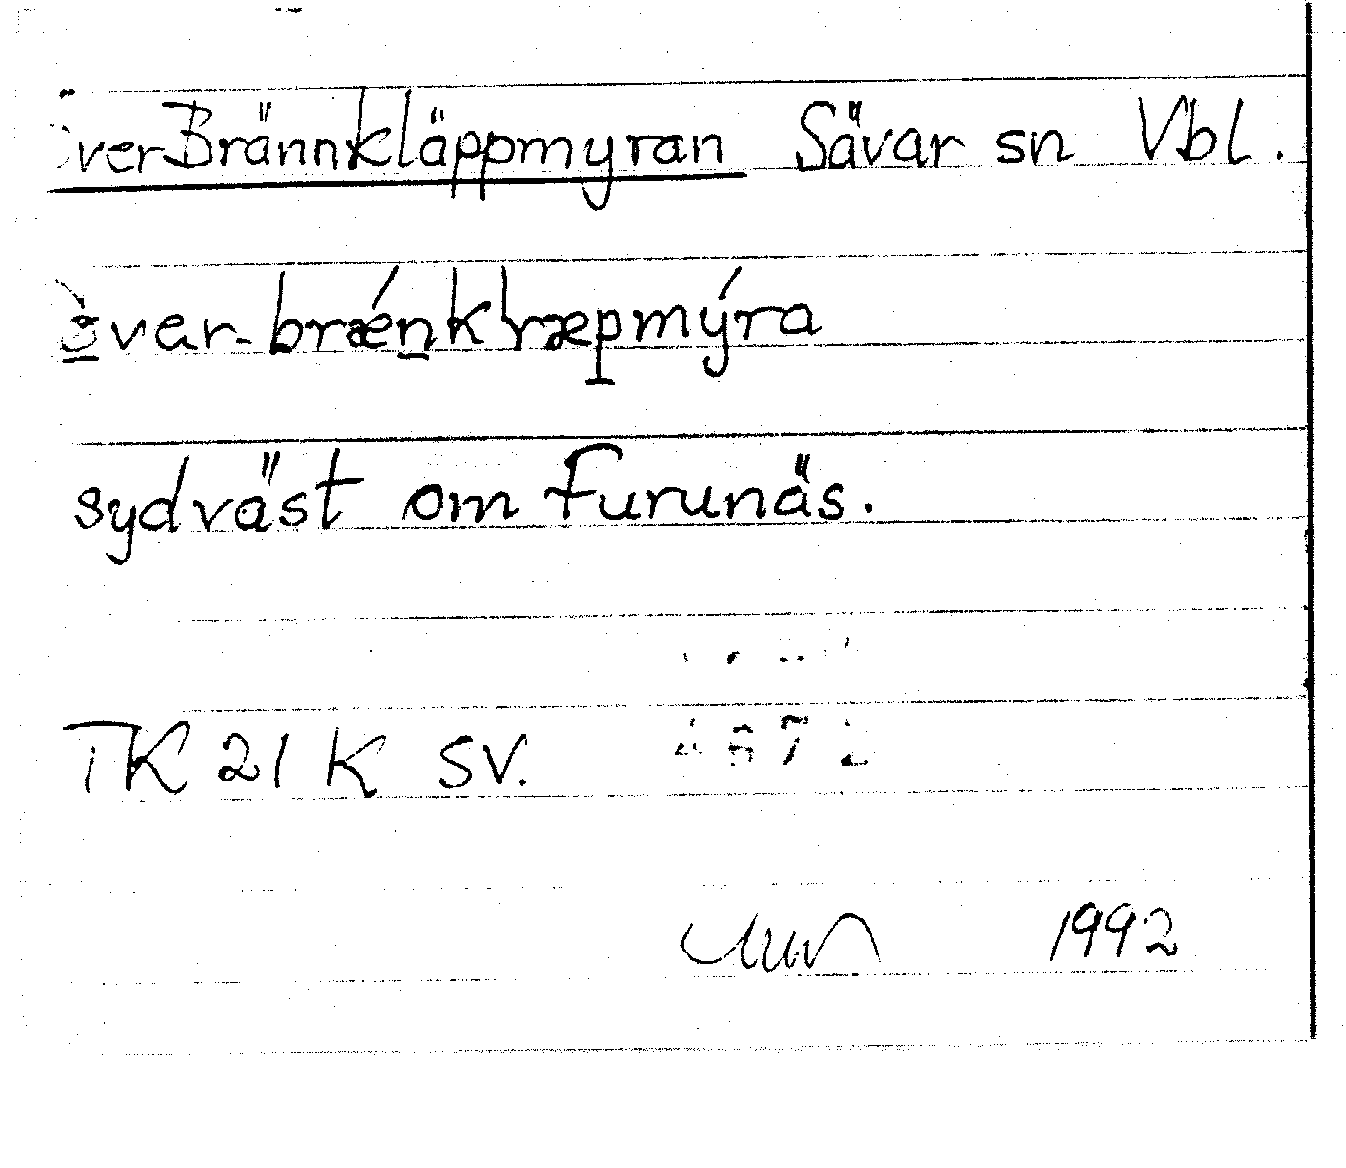 ÖverBrännkläppmyran Sävar sn Vbl.
över-brǽn̲kłæp̲mýra
sydväst om Furunäs.
TK 21 K SV.
1992